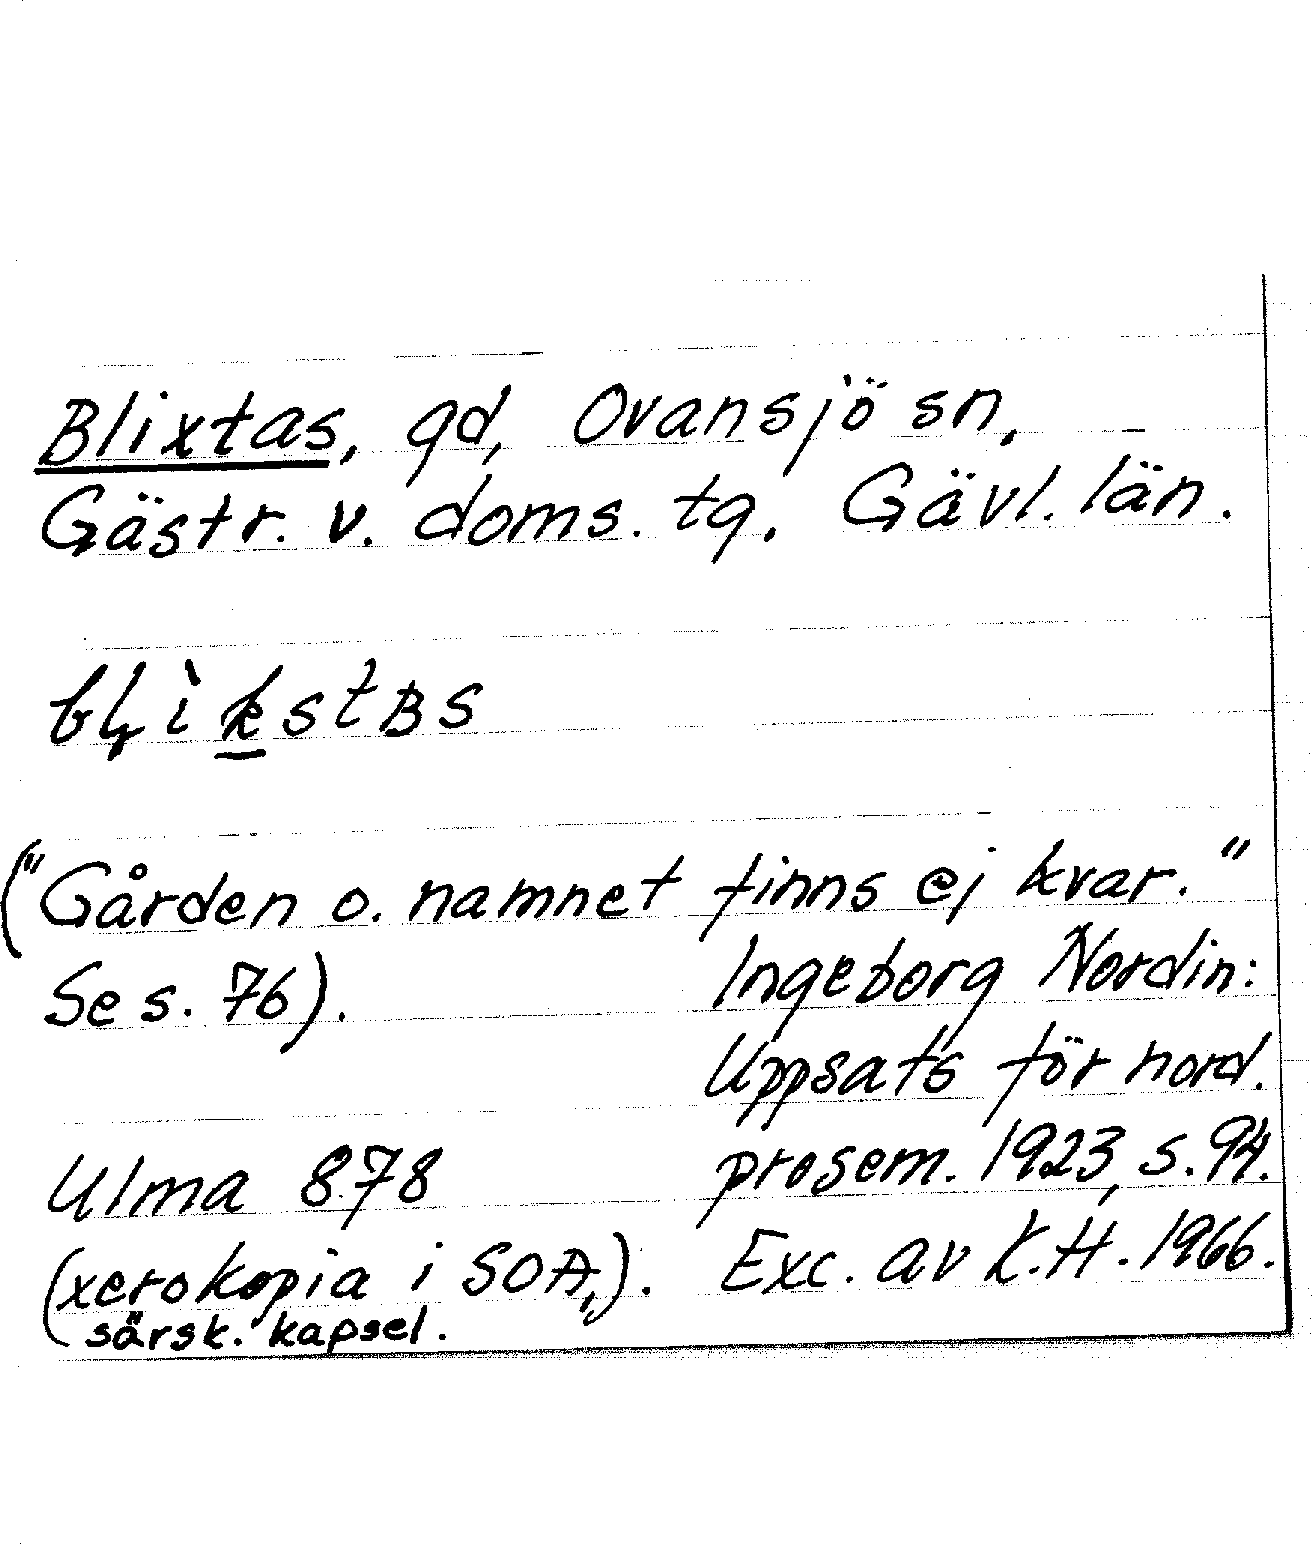 Blixtas, gd, Ovansjö sn,
Gästr. v. doms. tg, Gävl. län.
blìkstBs
("Gården o. namnet finns ej kvar."
Se s. 76).
Ingeborg Nordin:
Uppsats för nord.
prosem. 1923, s. 94.
Exc. av K.H. 1966.
Ulma 878
(xerokopia i SOA,).
särsk. kapsel.